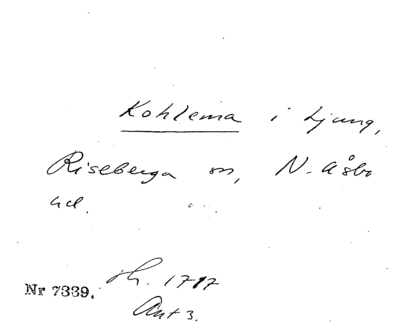 Kohlema i Ljung,
Riseberga sn, N. Åsbo
hd.
Nr 7339.
1717
Ant 3.